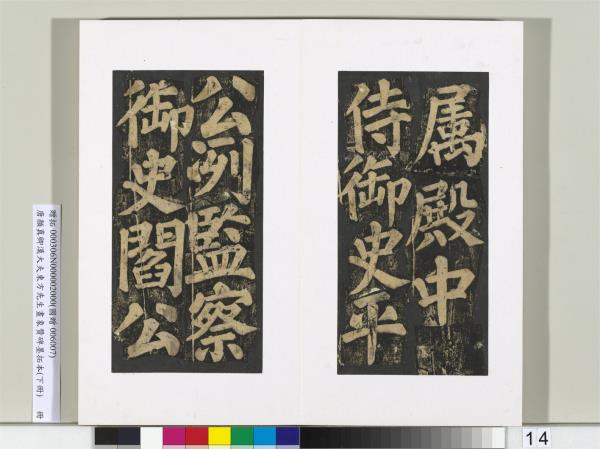 属殿中
侍御史平
公冽監察
御史閻公
贈拓 000306N000002000(國贈 006007)
唐顏真卿漢大夫東方先生畫象贊碑墨拓本(下冊) 冊
14